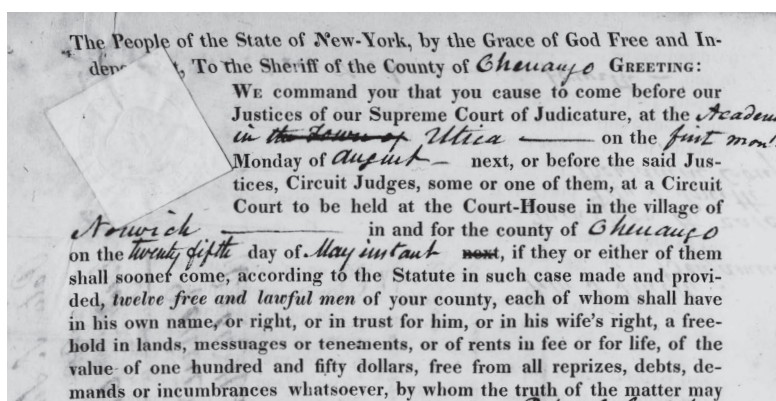 The People of the State of New-York, by the Grace of God Free and In-
dependent, To the Sheriff of the County of Chenango GREETING:
WE command you that you cause to come before our
Justices of our Supreme Court of Judicature, at the Academ
in the Town of Utica on the first mon
Monday of August next, or before the said Jus-
tices, Circuit Judges, some or one of them, at a Circuit
Court to be held at the Court-House in the village of
Norwich in and for the county of Chenango
on the twenty fifth day of May instant next, if they or either of them
shall sooner come, according to the Statute in such case made and provi-
ded, twelve free and lawful men of your county, each of whom shall have
in his own name, or right, or in trust for him, or in his wife's right, a free-
hold in lands, messuages or tenements, or of rents in fee or for life, of the
value of one hundred and fifty dollars, free from all reprizes, debts, de-
mands or incumbrances whatsoever, by whom the truth of the matter may